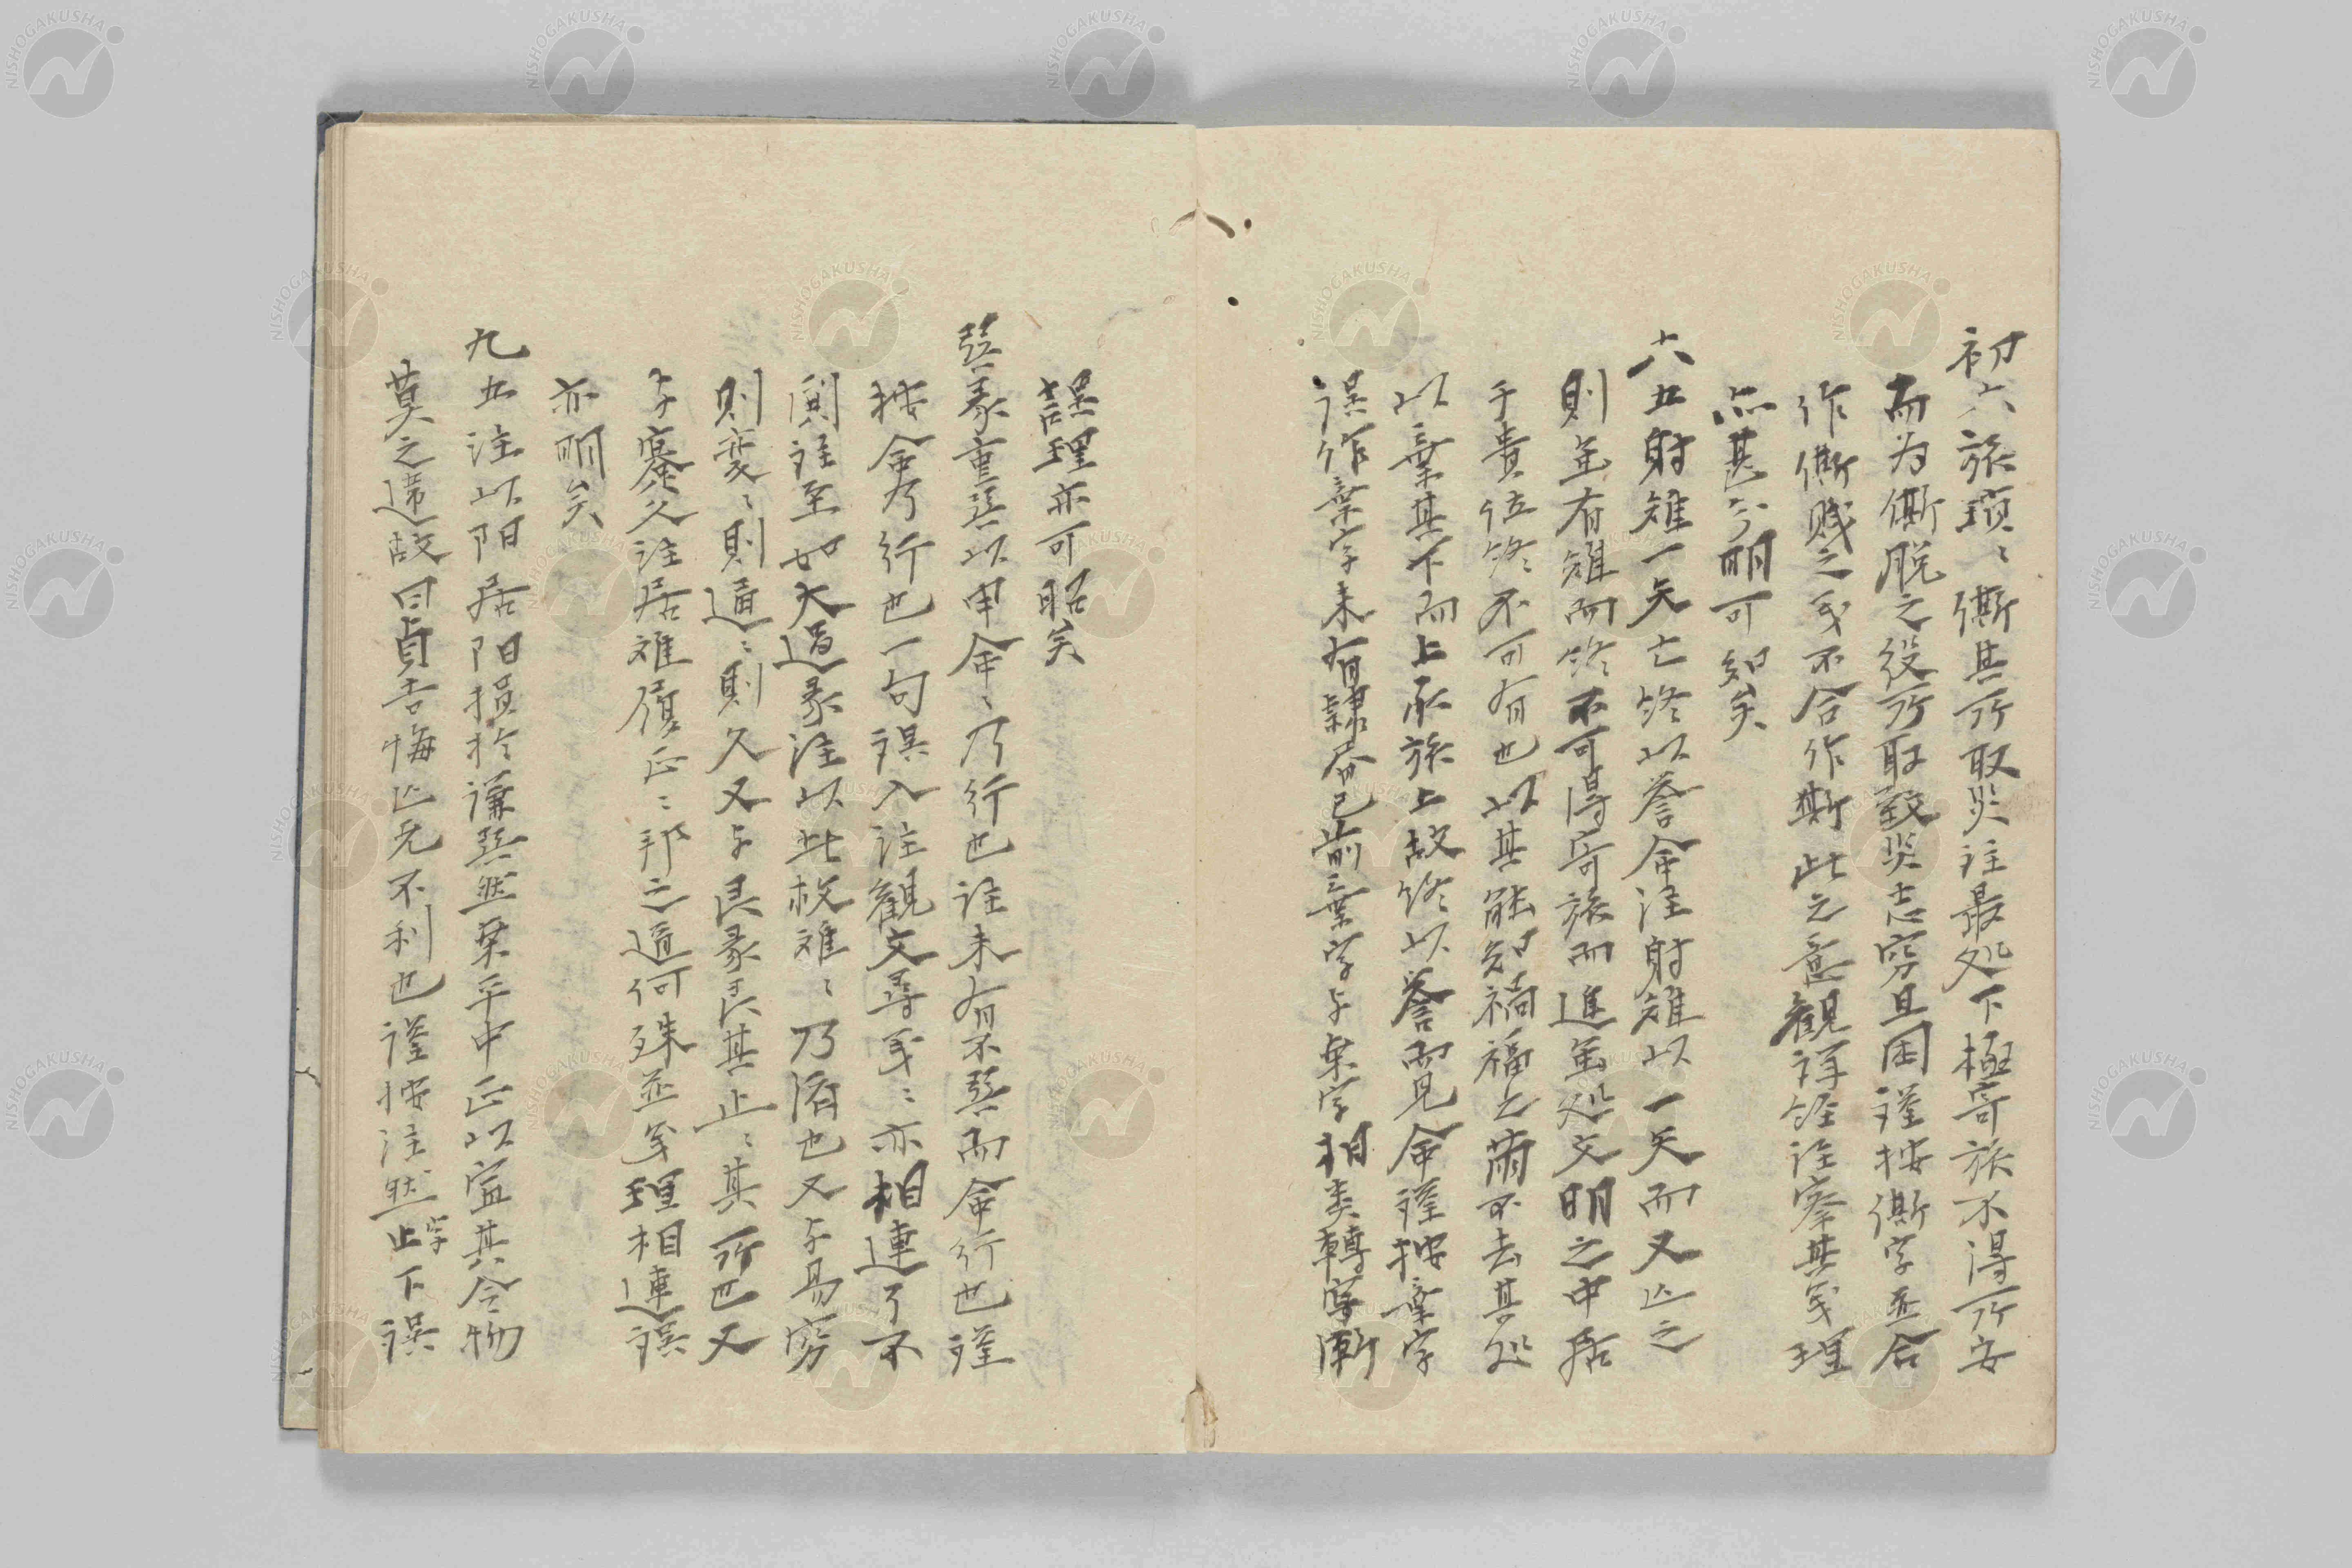 初六旅瑣〻㒋其所取災注最処下極寄旅不得所安
而为㒋賤之役所取致災志窮且困謹按㒋字並合
作㒋賤之義不合作斯此之意觀詳經注寀其義理
亦甚分明可知矣
六五射雉一矢亡終以誉命注射雉以一矢而又亡之
則虽有雉而終不可得寄旅而進虽処文明之中居
于貴位終不可有也以其能知禍福之萠不去其処
以棄其下而上承於上故終以誉而見命謹按棄字
誤作棄字未有隸書已前棄字与乗字相类轉写漸
誤理亦可昭矣
巽彖重巽以申命〻乃行也注未有不巽而命行也謹
按命乃行也一句誤入注觀文尋義〻亦相連了不
関注至如大過彖注以此救难〻乃済也又与易窮
則変〻則通〻則久又与艮彖艮其止〻其所也又
与蹇六注居难履正〻邦之道何殊並義理相連誤
亦明矣
九五注以阳居阳損於謙巽然秉乎中正以宣其令物
莫之違故曰貞吉悔亡无不利也謹按注然字止下誤